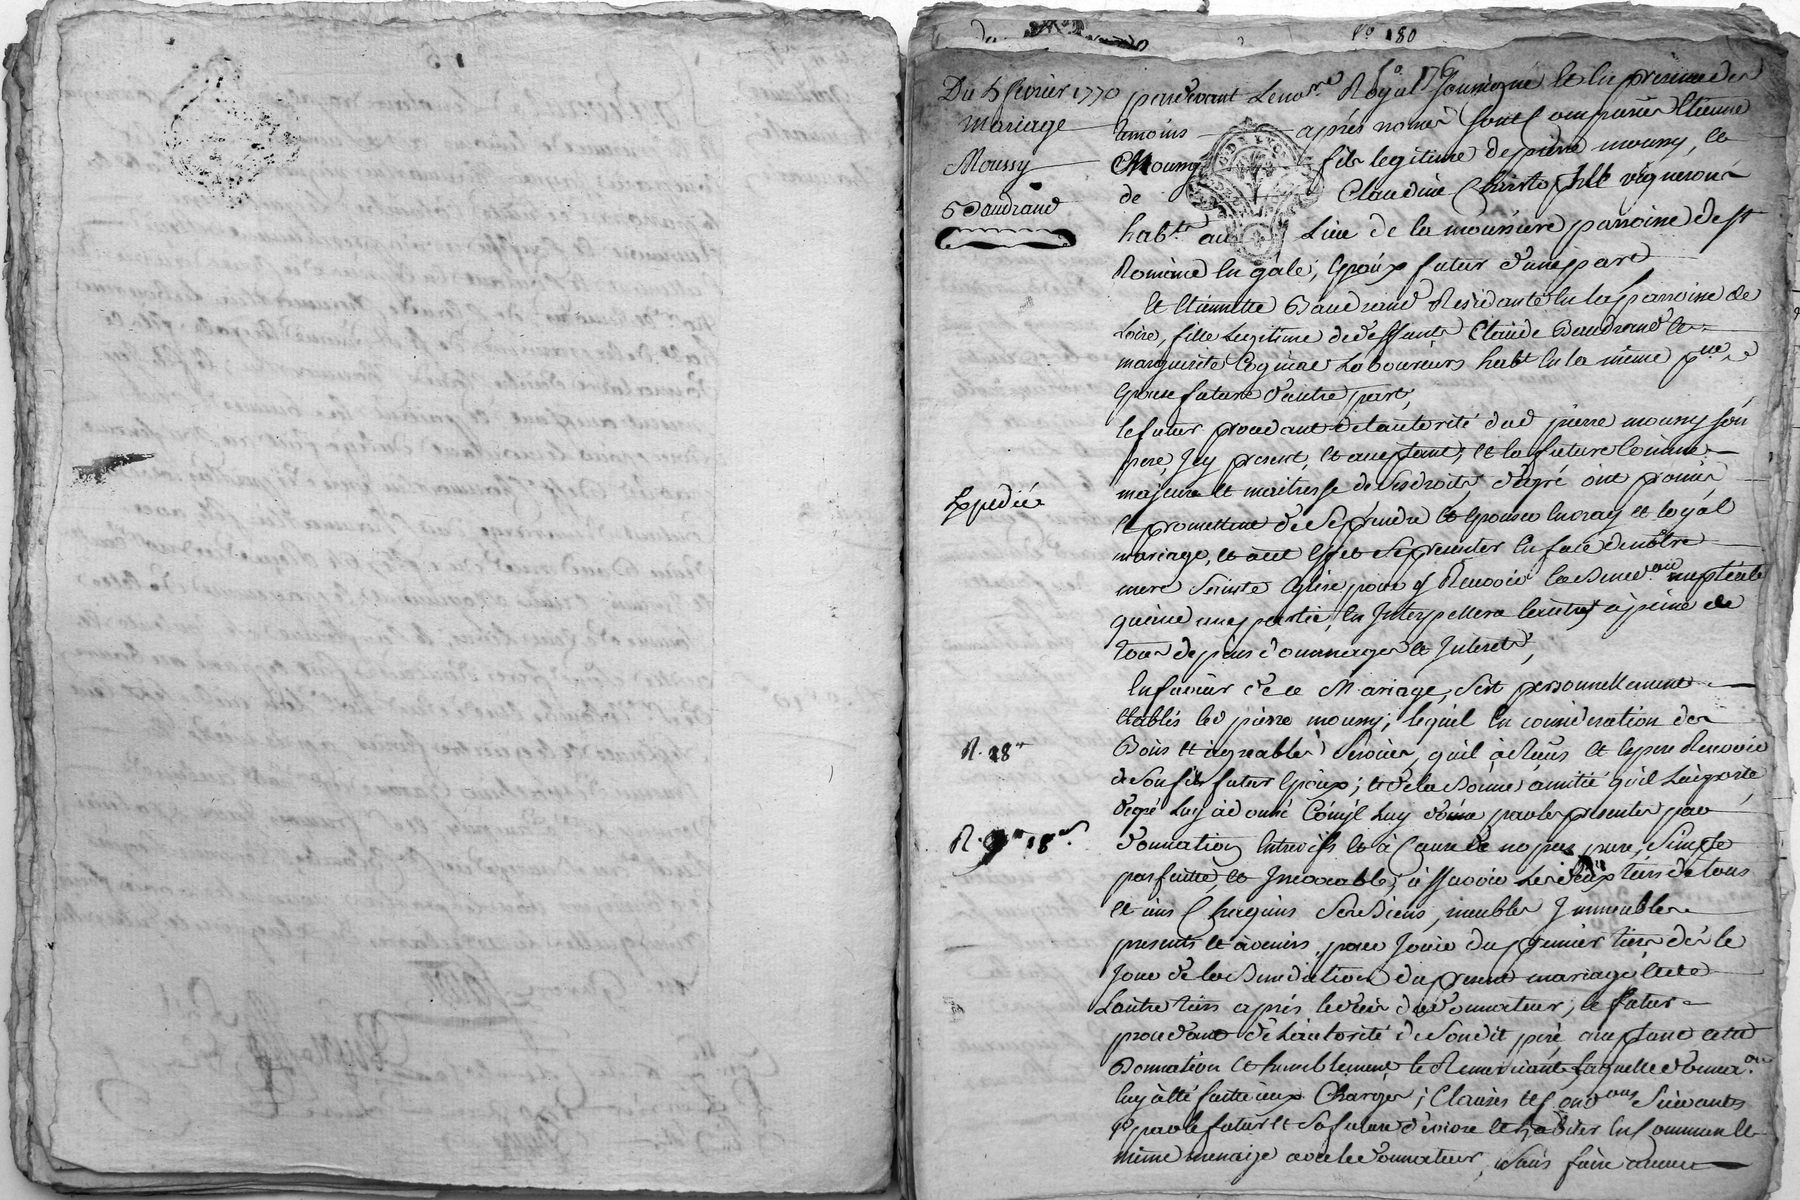 N° 180
Du 5 février 1770
mariage
Moussy
Baudrand
Expediée
R. 18
R. 18
pardevant Le no.re Royal soussigné et en presence des
temoins après només sont comparus Etienne
Moussy fils legitime de pierre moussy, et
de Claudine vignerons
hab.ts au Lieu de la moussiere parroisse de st
Romain en gale, Epoux futur d'une part
et Etiennette Baudrand Residante en la parroisse de
Loire, fille Legitime de deffunt Claude Baudrand et
marguerite Laboureurs habt en la même
Epouse future d'autre part,
le futur procedant de lautorité dud pierre moussy son
pere, Icy present, et aceptant, et la future Comme
majeure et maitresse de ses droits, degré ont promis
et promettent de se prendre et Epouser en vray et loyal
mariage, et a cet effet se presenter en face de notre
mere sainte Eglise pour y Recevoir la Bened.on nuptiale
quand une partie en Interpellera lautre à peine de
tous depens dommages et Interets,
En faveur de ce Mariage, s'est personnellement
Etablis led pierre moussy, lequel en consideration des
Bons et agreables services, quil à Reçus et Espere Recevoir
de son fils futur Epoux; et de la Bonne amitié quil Luy porte,
degré Luy à donné Comme il Luy donne par les presentes par
donnation entrevifs et à Cause de nopces pure, simple
parfaitte, et Irrevocable, à sçavoir Les deux tiers de tous
et uns Chaquns ses Biens, meubles Immeubles
presents et avenirs, pour Jouir du premier tiers dès le
Jour de la Benediction du present mariage, et de
Lautre tiers après le deces du donnateur, le futur
procedant de Lautorité de sondit pere, aceptant cette
Donnation et humblement le Remerciant Laquelle donna.on
luy à été faitte aux Charges, Clauses et Cond.ons suivantes
1° que le futur et sa future vivre et habiter En Commun et
même menage avec le donnateur, sans faire aucun